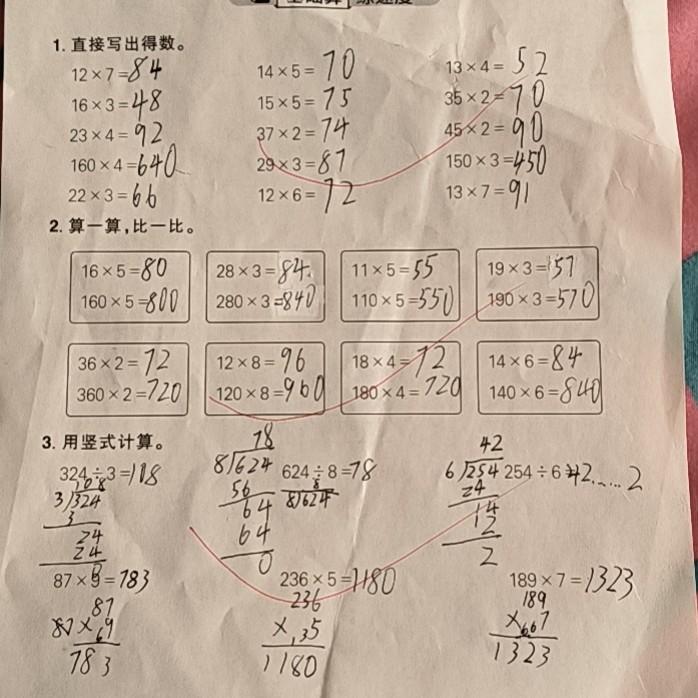 1. 直接写出得数。
12×7=84 14×5=70 13×4=52
16×3=48 15×5=75 35×2=70
23×4=92 37×2=74 45×2=90
160×4=640 29×3=87 150×3=450
22×3=66 12×6=72 13×7=91
2. 算一算,比一比。
16×5=80 28×3=84 11×5=55 19×3=57
160×5=800 280×3=840 110×5=550 190×3=570
36×2=72 12×8=96 18×4=72 14×6=84
360×2=720 120×8=960 180×4=720 140×6=840
3. 用竖式计算。
324÷3=108
108
3)324
3
24
24
0
78
8)624
56
64
64
0
624÷8=78
8
8)624
42
6)254
24
14
12
2
254÷6=42……2
87×9=783
87
×69
783
236×5=1180
236
×135
1180
189×7=1323
189
×667
1323